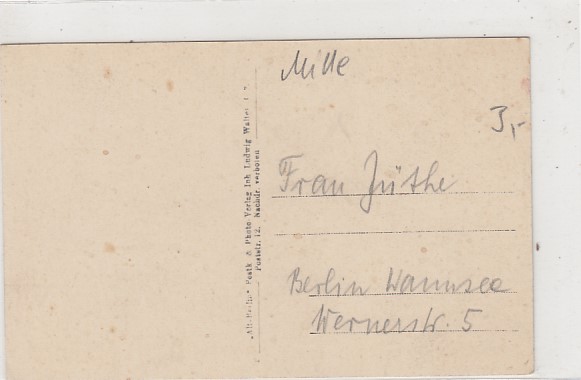 Mille
3,-
Frau Jüthe
Berlin Wannsee
Wernerstr. 5
"Alt-Berlin" Postk & Photo Verlag Inh Ludwig Walter
Poststr. 12. Nachdr. verboten